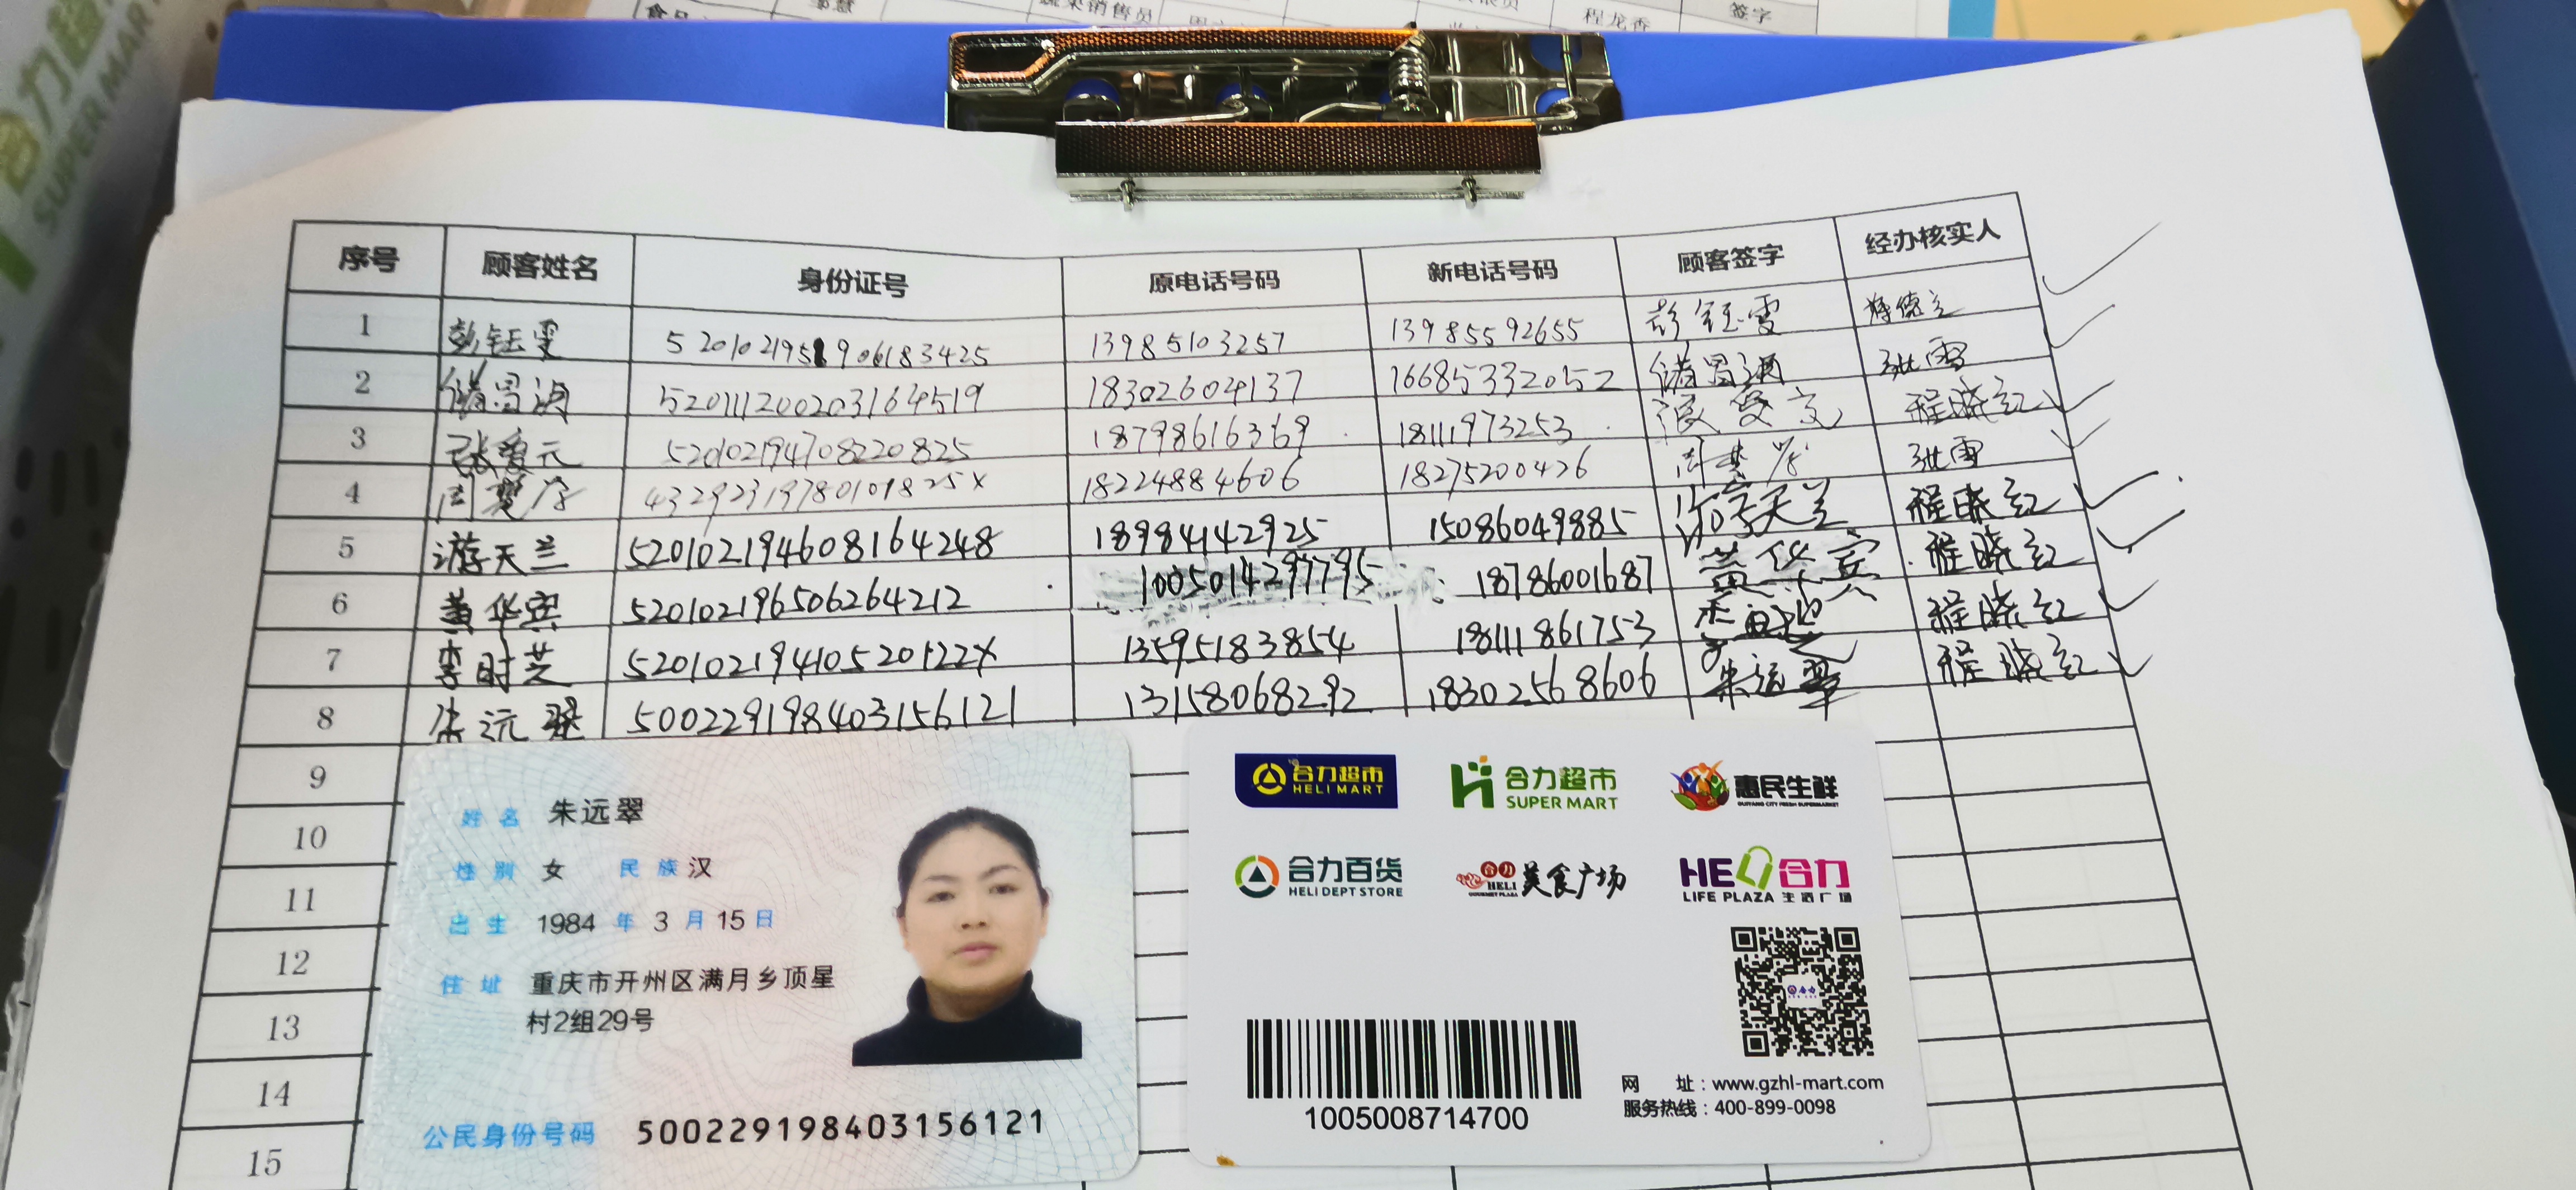 合力超
SUPER MART
蔬果销售员
程龙香
签字
序号 顾客姓名 身份证号 原电话号码 新电话号码 顾客签字 经办核实人
1 彭钰雯 13985103257 13985592655 彭钰雯
2 520111200203164519 18302604137 16685332052 张雪
3 张爱元 520102194708220825 18798616369 18111973253 张爱元 程晓红
4 43292319780109825X 18224884606 18275200426 张雪
5 游天兰 520102194608164248 18984142925 15086049885 游天兰 程晓红
6 黄华宾 520102196506264212 1005014297795 18786001687 黄华宾 程晓红
7 李时芝 52010219410520122X 13595183854 18111861753 程晓红
8 朱远翠 500229198403156121 13158068292 18302568606 朱远翠 程晓红
9
10
11
12
13
14
15
姓名 朱远翠
性别 女 民族 汉
出生 1984 年 3 月 15 日
住址 重庆市开州区满月乡顶星
村2组29号
公民身份号码 500229198403156121
合力超市 HELI MART
合力超市 SUPER MART
惠民生鲜
合力百货 HELI DEPT STORE
合力 HELI 美食广场
HELI合力 LIFE PLAZA 生活广场
1005008714700
网 址：www.gzhl-mart.com
服务热线：400-899-0098